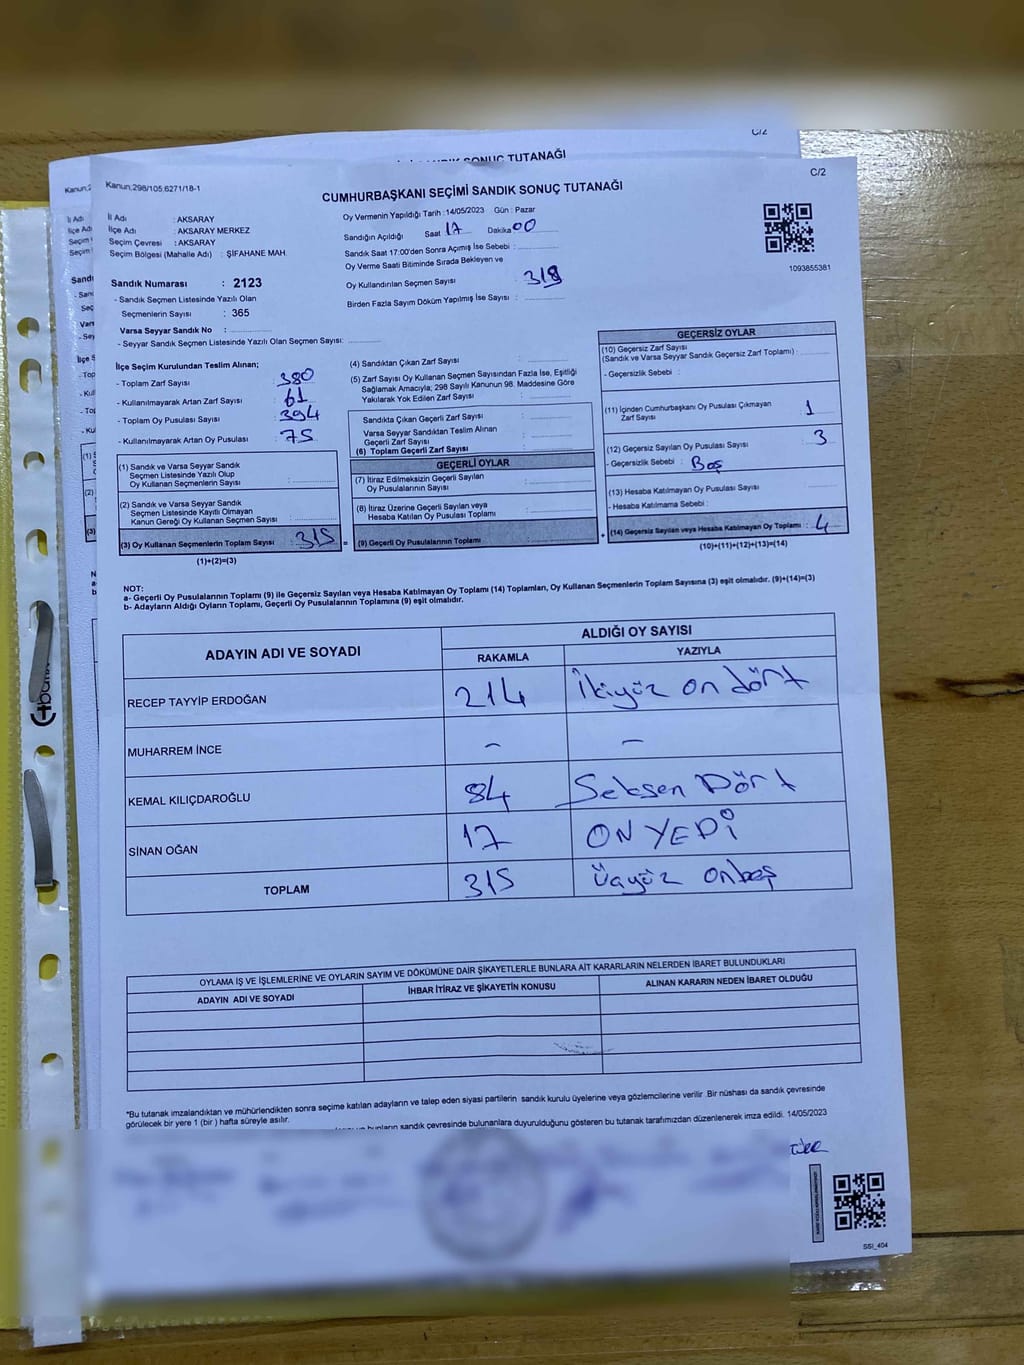 C/2
SONUÇ TUTANAĞI
Kanun;298/105;6271/18-1
C/2
CUMHURBAŞKANI SEÇİMİ SANDIK SONUÇ TUTANAĞI
İl Adı : AKSARAY
İlçe Adı : AKSARAY MERKEZ
Seçim Çevresi : AKSARAY
Seçim Bölgesi (Mahalle Adı) : ŞİFAHANE MAH.
Oy Vermenin Yapıldığı Tarih : 14/05/2023 Gün : Pazar
Sandığın Açıldığı Saat 17 Dakika 00
Sandık Saat 17:00'den Sonra Açılmış İse Sebebi :
Oy Verme Saati Bitiminde Sırada Bekleyen ve
Oy Kullandırılan Seçmen Sayısı :
Birden Fazla Sayım Döküm Yapılmış İse Sayısı :
1093855381
Sandık Numarası : 2123
- Sandık Seçmen Listesinde Yazılı Olan
Seçmenlerin Sayısı : 365
Varsa Seyyar Sandık No :
- Seyyar Sandık Seçmen Listesinde Yazılı Olan Seçmen Sayısı:
İlçe Seçim Kurulundan Teslim Alınan;
- Toplam Zarf Sayısı : 380
- Kullanılmayarak Artan Zarf Sayısı : 61
- Toplam Oy Pusulası Sayısı : 394
- Kullanılmayarak Artan Oy Pusulası : 75
(1) Sandık ve Varsa Seyyar Sandık
Seçmen Listesinde Yazılı Olup
Oy Kullanan Seçmenlerin Sayısı :
(2) Sandık ve Varsa Seyyar Sandık
Seçmen Listesinde Kayıtlı Olmayan
Kanun Gereği Oy Kullanan Seçmen Sayısı :
(3) Oy Kullanan Seçmenlerin Toplam Sayısı : 315 =
(1)+(2)=(3)
(4) Sandıktan Çıkan Zarf Sayısı
(5) Zarf Sayısı Oy Kullanan Seçmen Sayısından Fazla İse, Eşitliği
Sağlamak Amacıyla; 298 Sayılı Kanunun 98. Maddesine Göre
Yakılarak Yok Edilen Zarf Sayısı :
Sandıkta Çıkan Geçerli Zarf Sayısı :
Varsa Seyyar Sandıktan Teslim Alınan
Geçerli Zarf Sayısı :
(6) Toplam Geçerli Zarf Sayısı :
GEÇERLİ OYLAR
(7) İtiraz Edilmeksizin Geçerli Sayılan
Oy Pusulalarının Sayısı :
(8) İtiraz Üzerine Geçerli Sayılan veya
Hesaba Katılan Oy Pusulası Toplamı :
(9) Geçerli Oy Pusulalarının Toplamı : +
GEÇERSİZ OYLAR
(10) Geçersiz Zarf Sayısı
(Sandık ve Varsa Seyyar Sandık Geçersiz Zarf Toplamı) :
- Geçersizlik Sebebi :
(11) İçinden Cumhurbaşkanı Oy Pusulası Çıkmayan
Zarf Sayısı : 1
(12) Geçersiz Sayılan Oy Pusulası Sayısı : 3
- Geçersizlik Sebebi : Boş
(13) Hesaba Katılmayan Oy Pusulası Sayısı :
- Hesaba Katılmama Sebebi :
(14) Geçersiz Sayılan veya Hesaba Katılmayan Oy Toplamı : 4
(10)+(11)+(12)+(13)=(14)
NOT:
a- Geçerli Oy Pusulalarının Toplamı (9) ile Geçersiz Sayılan veya Hesaba Katılmayan Oy Toplamı (14) Toplamları, Oy Kullanan Seçmenlerin Toplam Sayısına (3) eşit olmalıdır. (9)+(14)=(3)
b- Adayların Aldığı Oyların Toplamı, Geçerli Oy Pusulalarının Toplamına (9) eşit olmalıdır.
ADAYIN ADI VE SOYADI ALDIĞI OY SAYISI
RAKAMLA YAZIYLA
RECEP TAYYİP ERDOĞAN 214 İkiyüz on dört
MUHARREM İNCE - -
KEMAL KILIÇDAROĞLU 84 Seksen Dört
SİNAN OĞAN 17 ON YEDİ
TOPLAM 315 üçyüz onbeş
OYLAMA İŞ VE İŞLEMLERİNE VE OYLARIN SAYIM VE DÖKÜMÜNE DAİR ŞİKAYETLERLE BUNLARA AİT KARARLARIN NELERDEN İBARET BULUNDUKLARI
ADAYIN ADI VE SOYADI İHBAR İTİRAZ VE ŞİKAYETİN KONUSU ALINAN KARARIN NEDEN İBARET OLDUĞU
*Bu tutanak imzalandıktan ve mühürlendikten sonra seçime katılan adayların ve talep eden siyasi partilerin sandık kurulu üyelerine veya gözlemcilerine verilir .Bir nüshası da sandık çevresinde
görülecek bir yere 1 (bir ) hafta süreyle asılır.
bunların sandık çevresinde bulunanlara duyurulduğunu gösteren bu tutanak tarafımızdan düzenlenerek imza edildi. 14/05/2023
SSİ_404